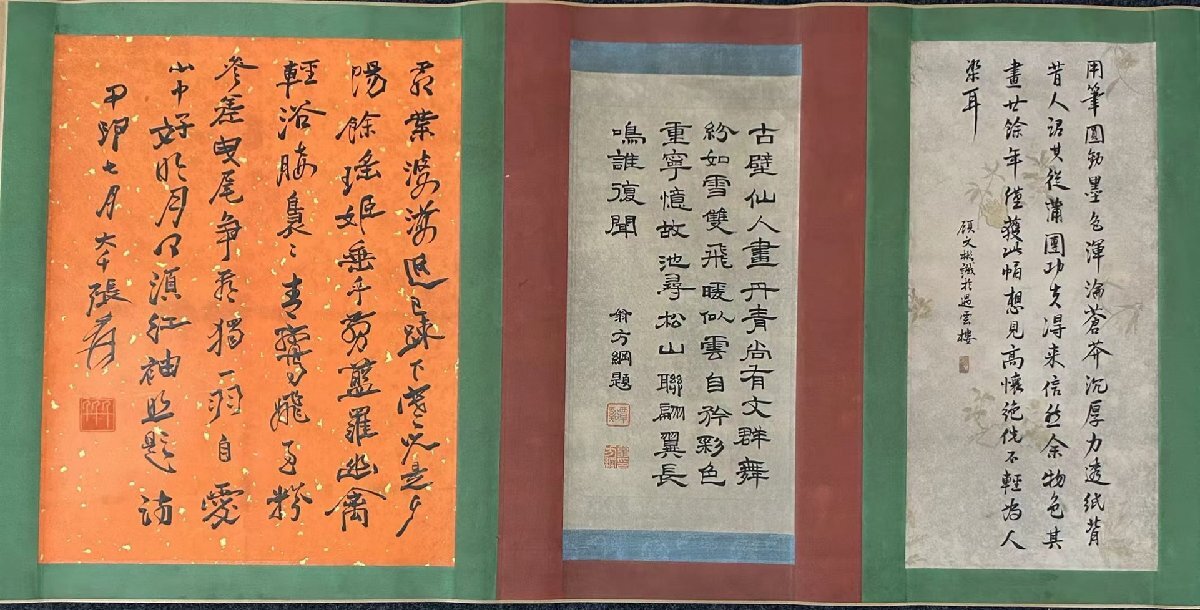 用筆圓勁墨色渾淪蒼莽沉厚力透紙背
昔人謂其從蒲團功夫得来信然余物色其
畫廿餘年僅獲此幀想見高懷絶俗不輕為人
染耳
顧文彬識於過雲樓
古壁仙人畫丹青尚有文群舞
紛如雪雙飛暖似雲自矜彩色
重寧憶故池尋松山聯翩翼長
鳴誰復聞
翁方綱題
葉婆娑已疎下
陽餘瑤姬垂手剪藍羅幽禽
輕浴青
參差曳尾争看獨一羽自愛
中好月只須紅袖照題詩
甲申七月大千張爰